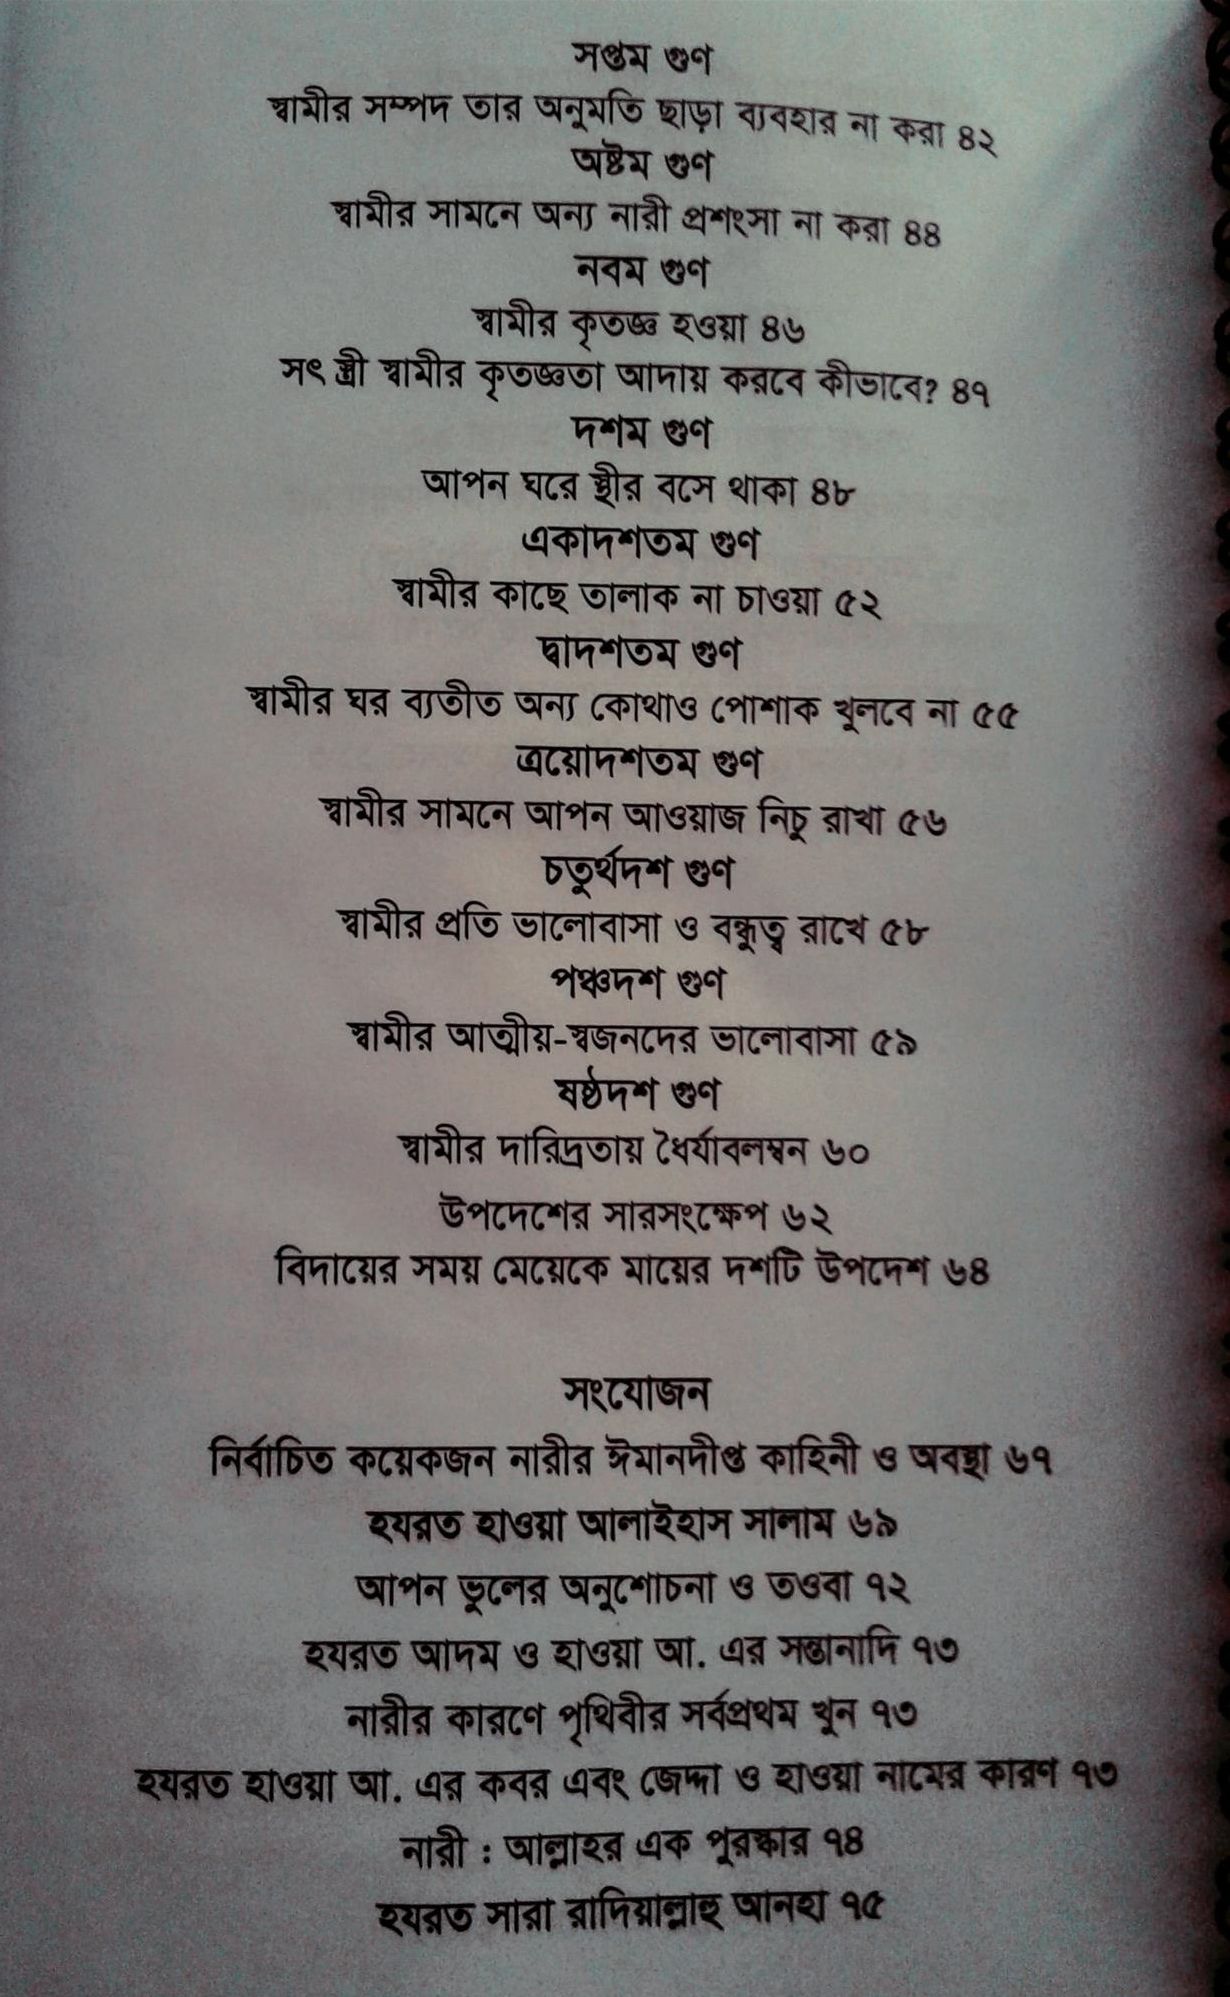 সপ্তম গুণ
স্বামীর সম্পদ তার অনুমতি ছাড়া ব্যবহার না করা ৪২
অষ্টম গুণ
স্বামীর সামনে অন্য নারী প্রশংসা না করা ৪৪
নবম গুণ
স্বামীর কৃতজ্ঞ হওয়া ৪৬
সৎ স্ত্রী স্বামীর কৃতজ্ঞতা আদায় করবে কীভাবে? ৪৭
দশম গুণ
আপন ঘরে স্থীর বসে থাকা ৪৮
একাদশতম গুণ
স্বামীর কাছে তালাক না চাওয়া ৫২
দ্বাদশতম গুণ
স্বামীর ঘর ব্যতীত অন্য কোথাও পোশাক খুলবে না ৫৫
ত্রয়োদশতম গুণ
স্বামীর সামনে আপন আওয়াজ নিচু রাখা ৫৬
চতুর্থদশ গুণ
স্বামীর প্রতি ভালোবাসা ও বন্ধুত্ব রাখে ৫৮
পঞ্চদশ গুণ
স্বামীর আত্মীয়-স্বজনদের ভালোবাসা ৫৯
ষষ্ঠদশ গুণ
স্বামীর দারিদ্রতায় ধৈর্যাবলম্বন ৬০
উপদেশের সারসংক্ষেপ ৬২
বিদায়ের সময় মেয়েকে মায়ের দশটি উপদেশ ৬৪
সংযোজন
নির্বাচিত কয়েকজন নারীর ঈমানদীপ্ত কাহিনী ও অবস্থা ৬৭
হযরত হাওয়া আলাইহাস সালাম ৬৯
আপন ভুলের অনুশোচনা ও তওবা ৭২
হযরত আদম ও হাওয়া আ. এর সন্তানাদি ৭৩
নারীর কারণে পৃথিবীর সর্বপ্রথম খুন ৭৩
হযরত হাওয়া আ. এর কবর এবং জেদ্দা ও হাওয়া নামের কারণ ৭৩
নারী : আল্লাহর এক পুরস্কার ৭৪
হযরত সারা রাদিয়াল্লাহু আনহা ৭৫